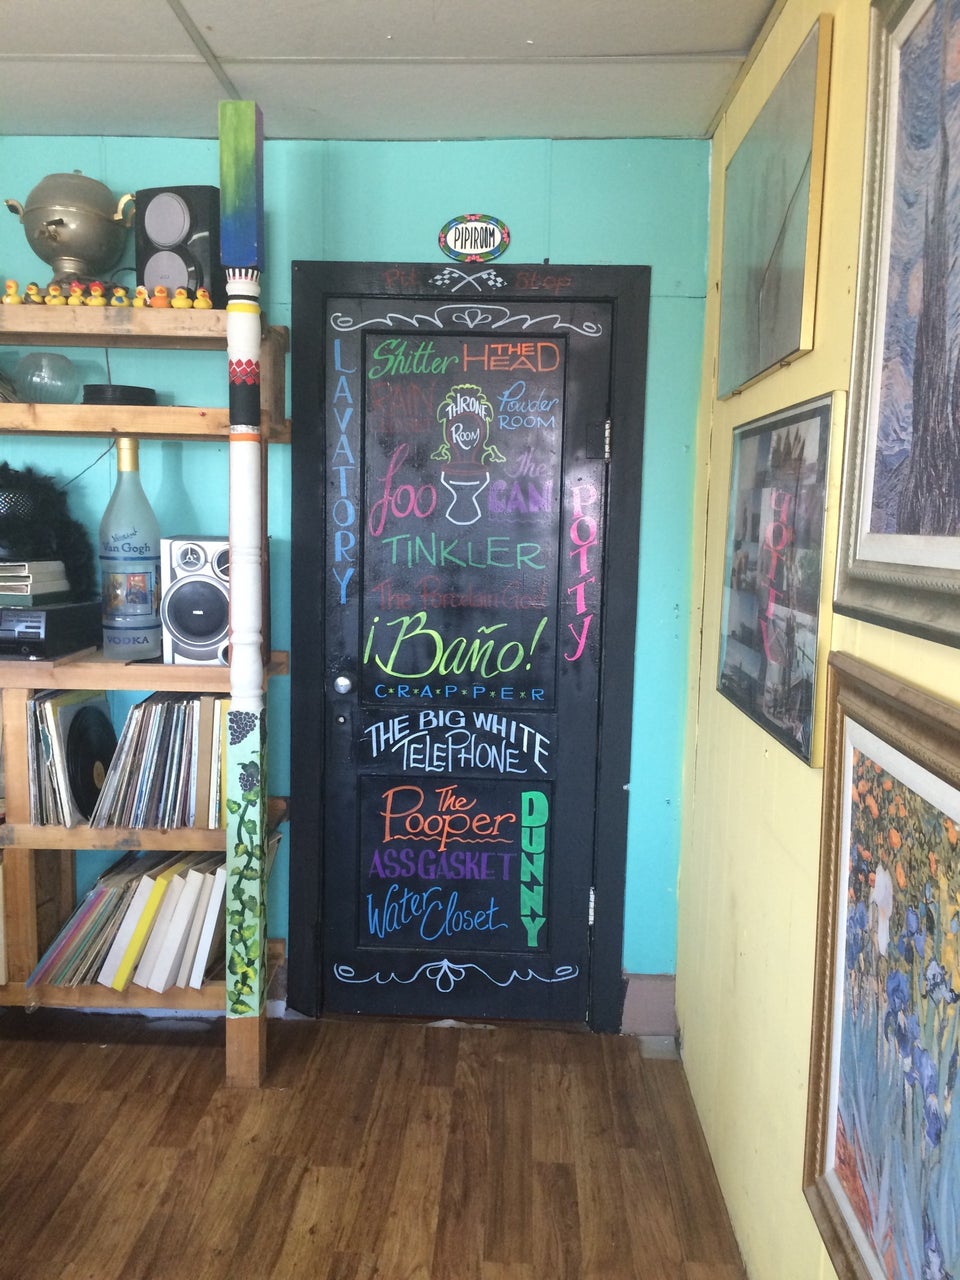 PIPIROOM
Pit Stop
LAVATORY
Shitter
THE HEAD
THRONE
ROOM
Powder
ROOM
Loo
The
CAN
POTTY
TINKLER
The Porcelain God
¡Baño!
C*R*A*P*P*E*R
THE BIG WHITE
TELEPHONE
The
Pooper
DUNNY
ASSGASKET
Water Closet
Vincent
Van Gogh
VODKA